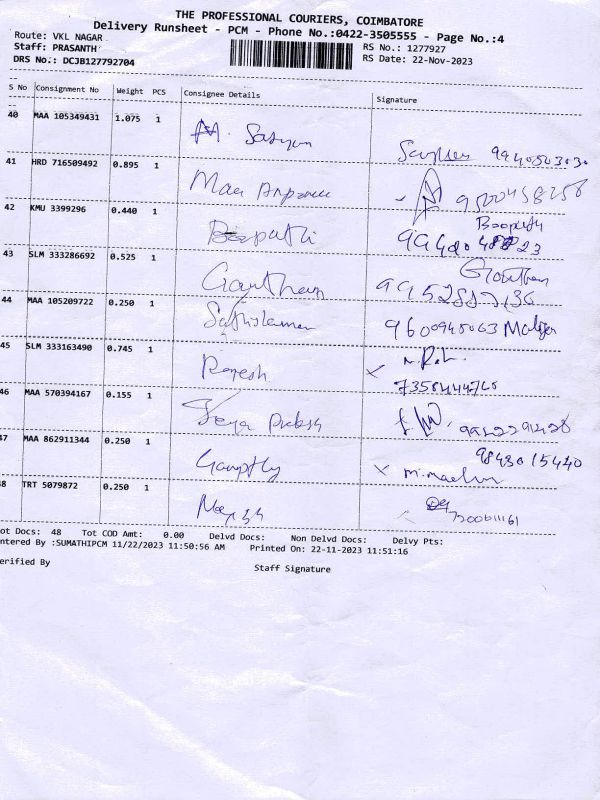 THE PROFESSIONAL COURIERS, COIMBATORE
Delivery Runsheet - PCM - Phone No.:0422-3505555 - Page No.:4
Route: VKL NAGAR
RS No.: 1277927
Staff: PRASANTH
RS Date: 22-Nov-2023
DRS No.: DCJB127792704
S No Consignment No Weight PCS Consignee Details Signature
40 MAA 105349431 1.075 1
41 HRD 716509492 0.895 1
9500458258
42 KMU 3399296 0.440 1
Boopathi
43 SLM 333286692 0.525 1
Gautham
44 MAA 105209722 0.250 1
9600945063
45 SLM 333163490 0.745 1
Rajesh
46 MAA 570394167 0.155 1
Prakash
47 MAA 862911344 0.250 1
9843015440
48 TRT 5079872 0.250 1
ot Docs: 48 Tot COD Amt: 0.00 Delvd Docs: Non Delvd Docs: Delvy Pts:
ntered By :SUMATHIPCM 11/22/2023 11:50:56 AM Printed On: 22-11-2023 11:51:16
erified By
Staff Signature